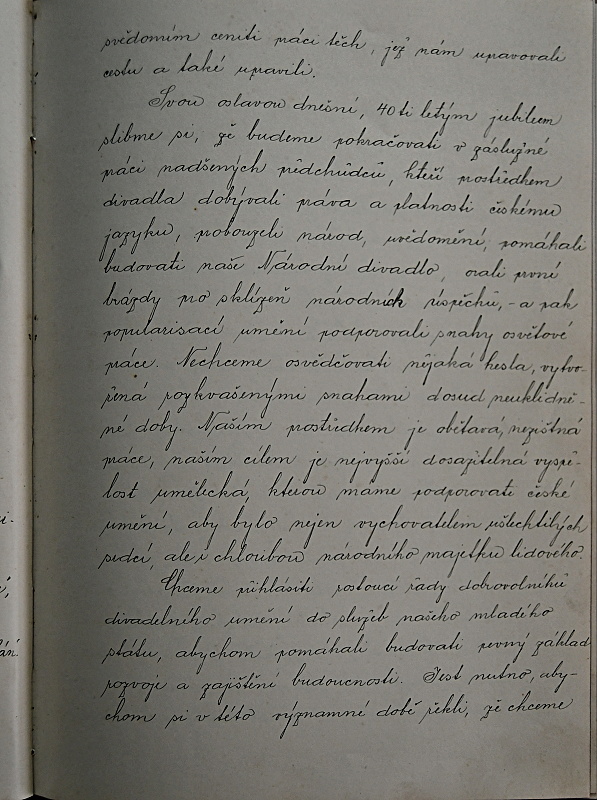 svědomím ceniti práci těch, jež nám upravovali
cestu a také upravili.
Svou oslavou dnešní, 40 ti letým jubileem
slibme si, že budeme pokračovati v záslužné
práci nadšených předchůdců, kteří prostředkem
divadla dobývali práva a platnosti českému
jazyku, probouzeli národ, uvědomění, pomáhali
budovati naše Národní divadlo, orali první
brázdy pro sklizeň národních úspěchů, - a pak
popularisací umění podporovali snahy osvětové
práce. Nechceme osvědčovati nějaká hesla, vytvo-
řená rozkvašenými snahami dosud neuklidně-
né doby. Naším prostředkem je obětavá, nezištná
práce, naším cílem je nejvyšší dosažitelná vyspě-
lost umělecká, kterou máme podporovati české
umění, aby bylo nejen vychovatelem ušlechtilých
srdcí, ale i chloubou národního majetku lidového.
Chceme přihlásiti rostoucí řady dobrovolníků
divadelního umění do služeb našeho mladého
státu, abychom pomáhali budovati pevný základ
rozvoje a zajištění budoucnosti. Jest nutno, aby-
chom si v této významné době řekli, že chceme